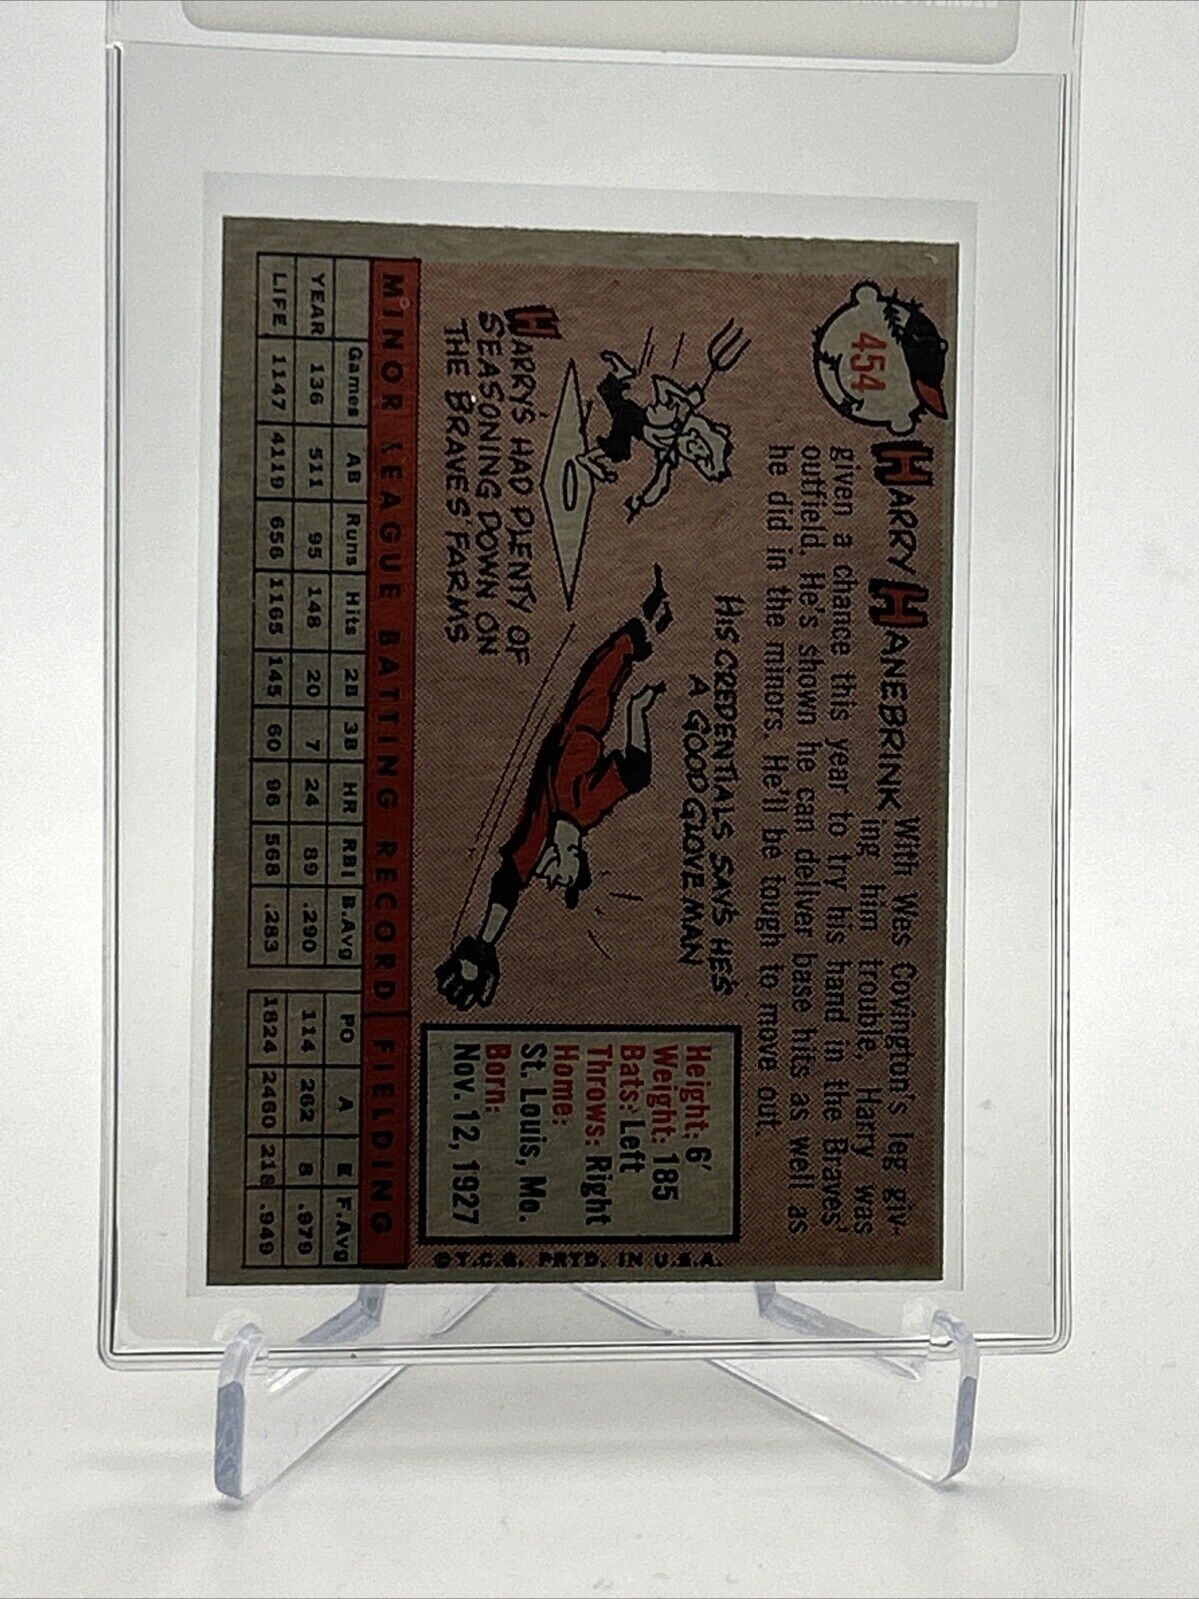 454
HARRY HANEBRINK With Wes Covington's leg giv-
ing him trouble, Harry was
given a chance this year to try his hand in the Braves'
outfield. He's shown he can deliver base hits as well as
he did in the minors. He'll be tough to move out.
HIS CREDENTIALS SAYS HE'S
A GOOD GLOVE MAN
HARRY'S HAD PLENTY OF
SEASONING DOWN ON
THE BRAVES' FARMS
Height: 6'
Weight: 185
Bats: Left
Throws: Right
Home:
St. Louis, Mo.
Born:
Nov. 12, 1927
© T.C.G. PRTD. IN U.S.A.
MINOR LEAGUE BATTING RECORD FIELDING
Games AB Runs Hits 2B 3B HR RBI B.Avg PO A E F.Avg
YEAR 136 511 95 148 20 7 24 89 .290 114 262 8 .979
LIFE 1147 4119 656 1165 145 60 96 568 .283 1824 2460 218 .949